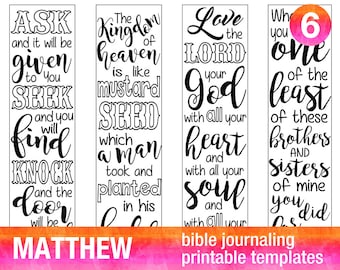 ASK
and it will be
given
to you
SEEK
and you
will
find
KNOCK
and the
door
will be
The
Kingdom
of
heaven
is like
mustard
SEED
which
a man
took and
planted
in his
Love
the
LORD
your
God
with all your
heart
and with
all your
soul
and with
all your
you
one
of the
least
of these
brothers
AND
sisters
of mine
you did
6
MATTHEW
bible journaling
printable templates